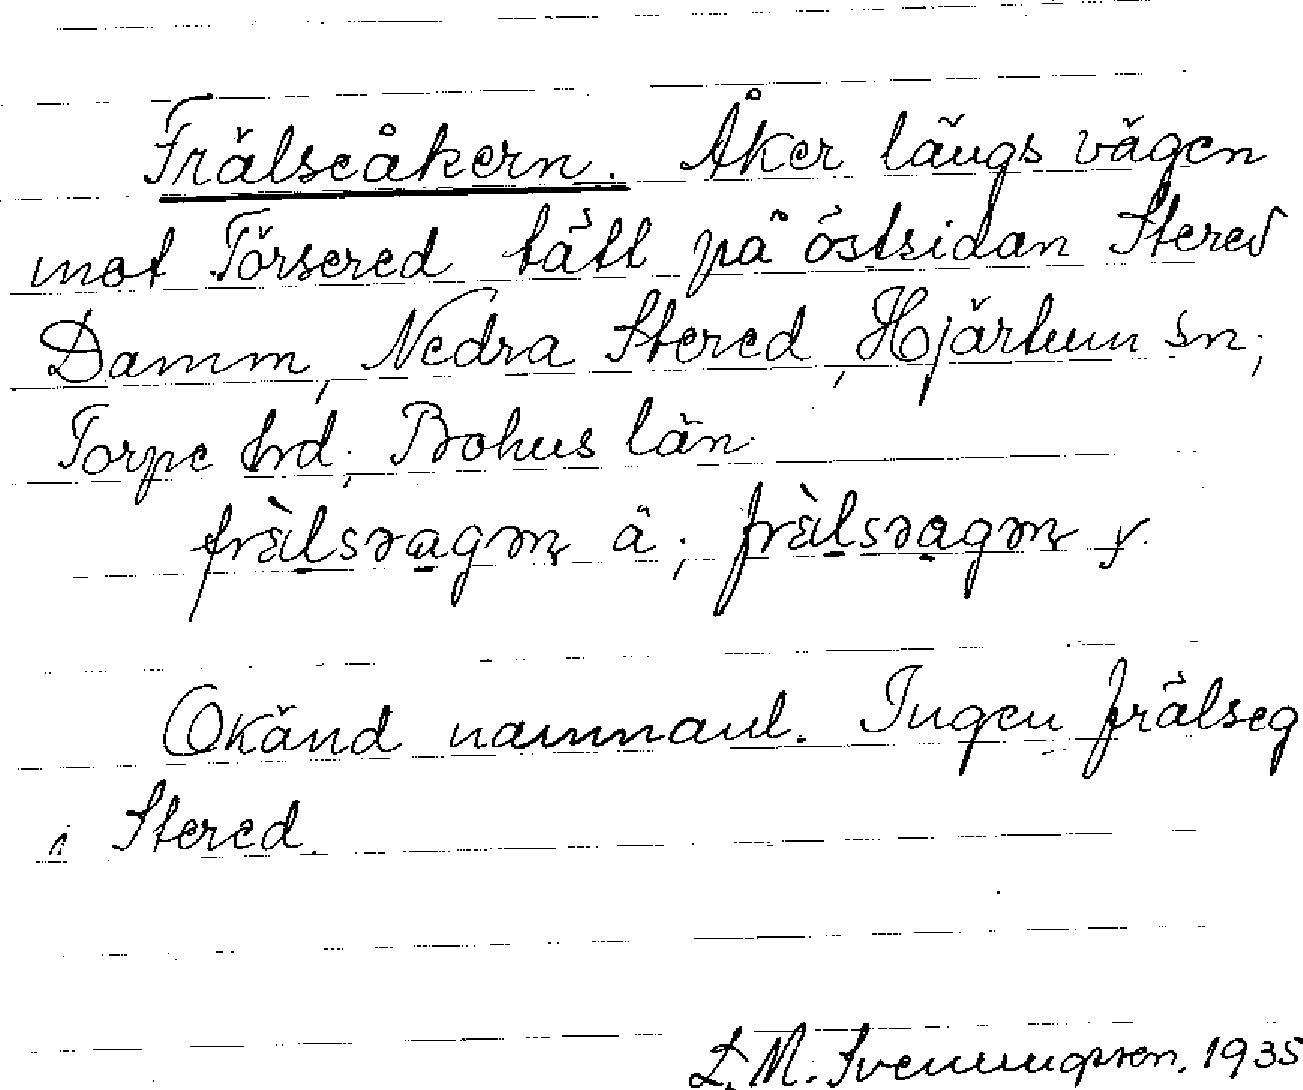 Frälseåkern. Åker längs vägen
mot Törsered tätt på östsidan Stered
Damm, Nedra Stered, Hjärtum sn;
Torpe hd; Bohus län
frὰlsɘagɘn ä; frὰlsɘagɘn y.
Okänd namnanl. Ingen frälseg
i Stered.
L. M. Svenungsson. 1935